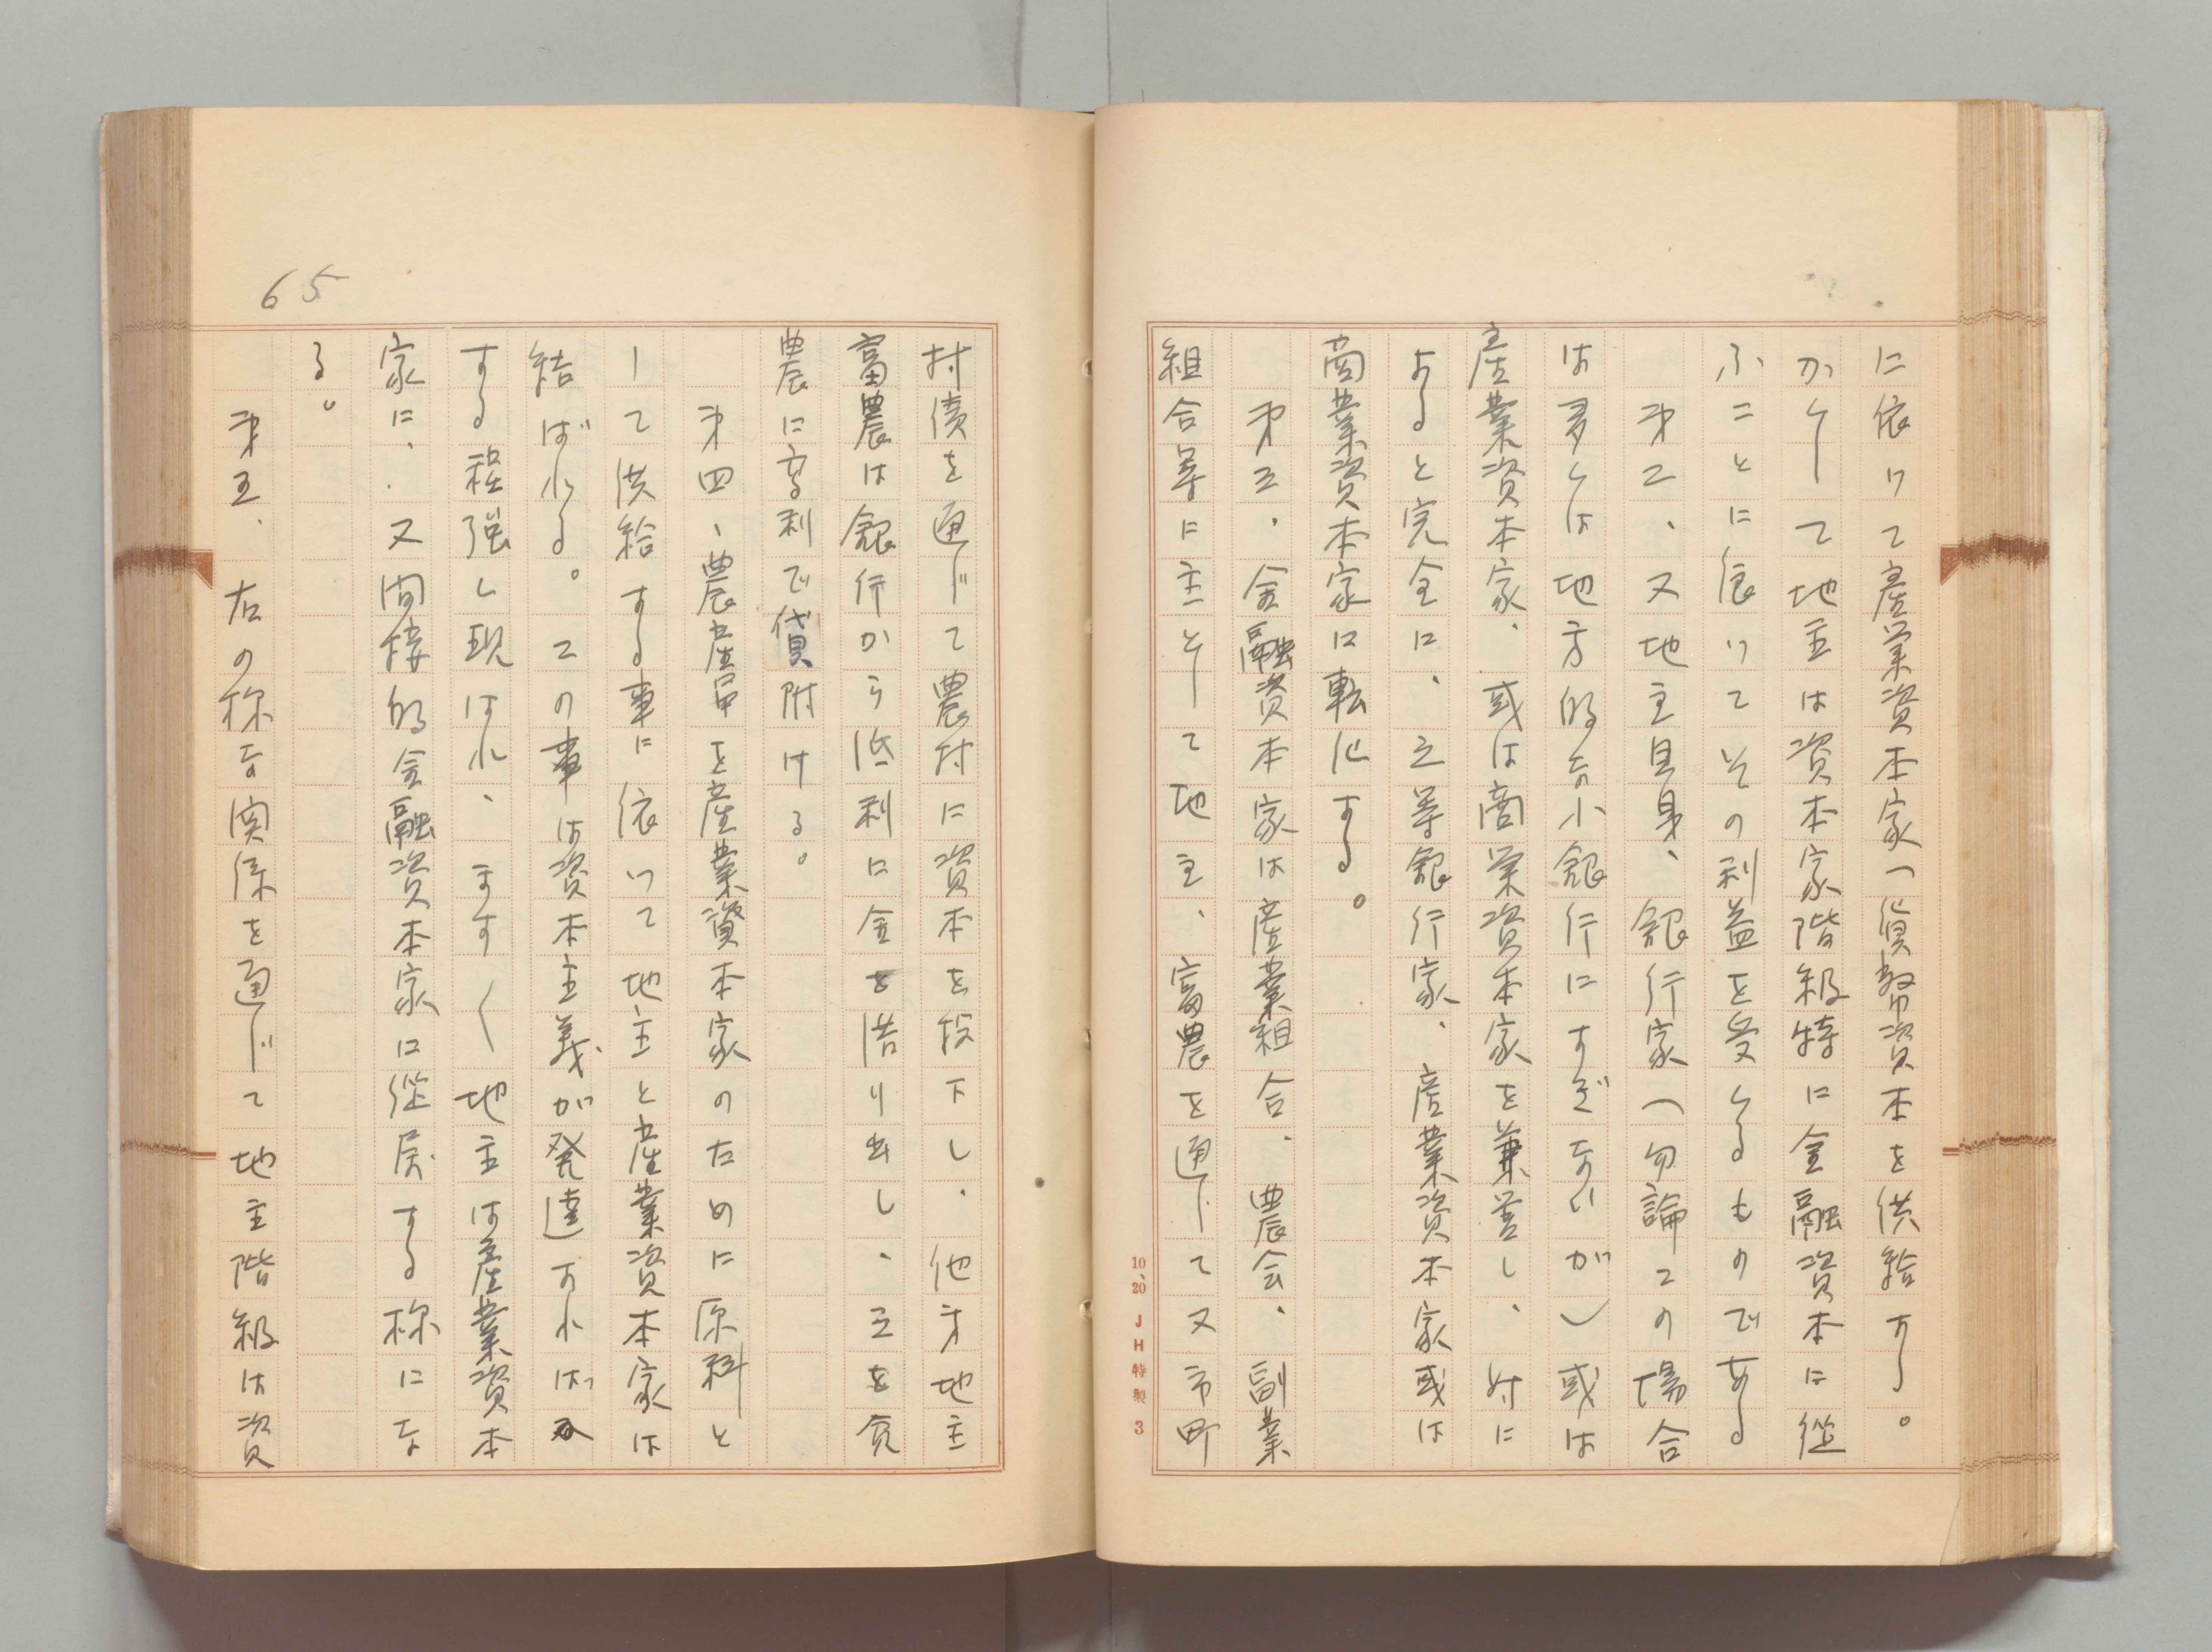 に依って産業資本家へ貨幣資本を供給す。
かくして地主は資本家階級特に金融資本に從
ふことに依ってその利益を受くるものである
第二、又地主自身、銀行家(勿論この場合
は多くは地方的な小銀行にすぎないが)或は
産業資本家、或は商業資本家を兼営し、時に
よると完全に、之等銀行家、産業資本家或は
商業資本家に転化する。
第三、金融資本家は産業組合、農会、副業
組合等に主として地主、富農を通じて又市町
10.20 JH特製 3
65
村債を通じて農村に資本を投下し、他方地主
富農は銀行から低利に金を借り出し、之を貧
農に高利で貸附ける。
第四、農産品を産業資本家のために原料と
して供給する事に依って地主と産業資本家は
結ばれる。この事は資本主義が発達すればする
する程強く現はれ、ます〱地主は産業資本
家に、又間接的金融資本家に從属する様にな
る。
第五、右の様な関係を通じて地主階級は資